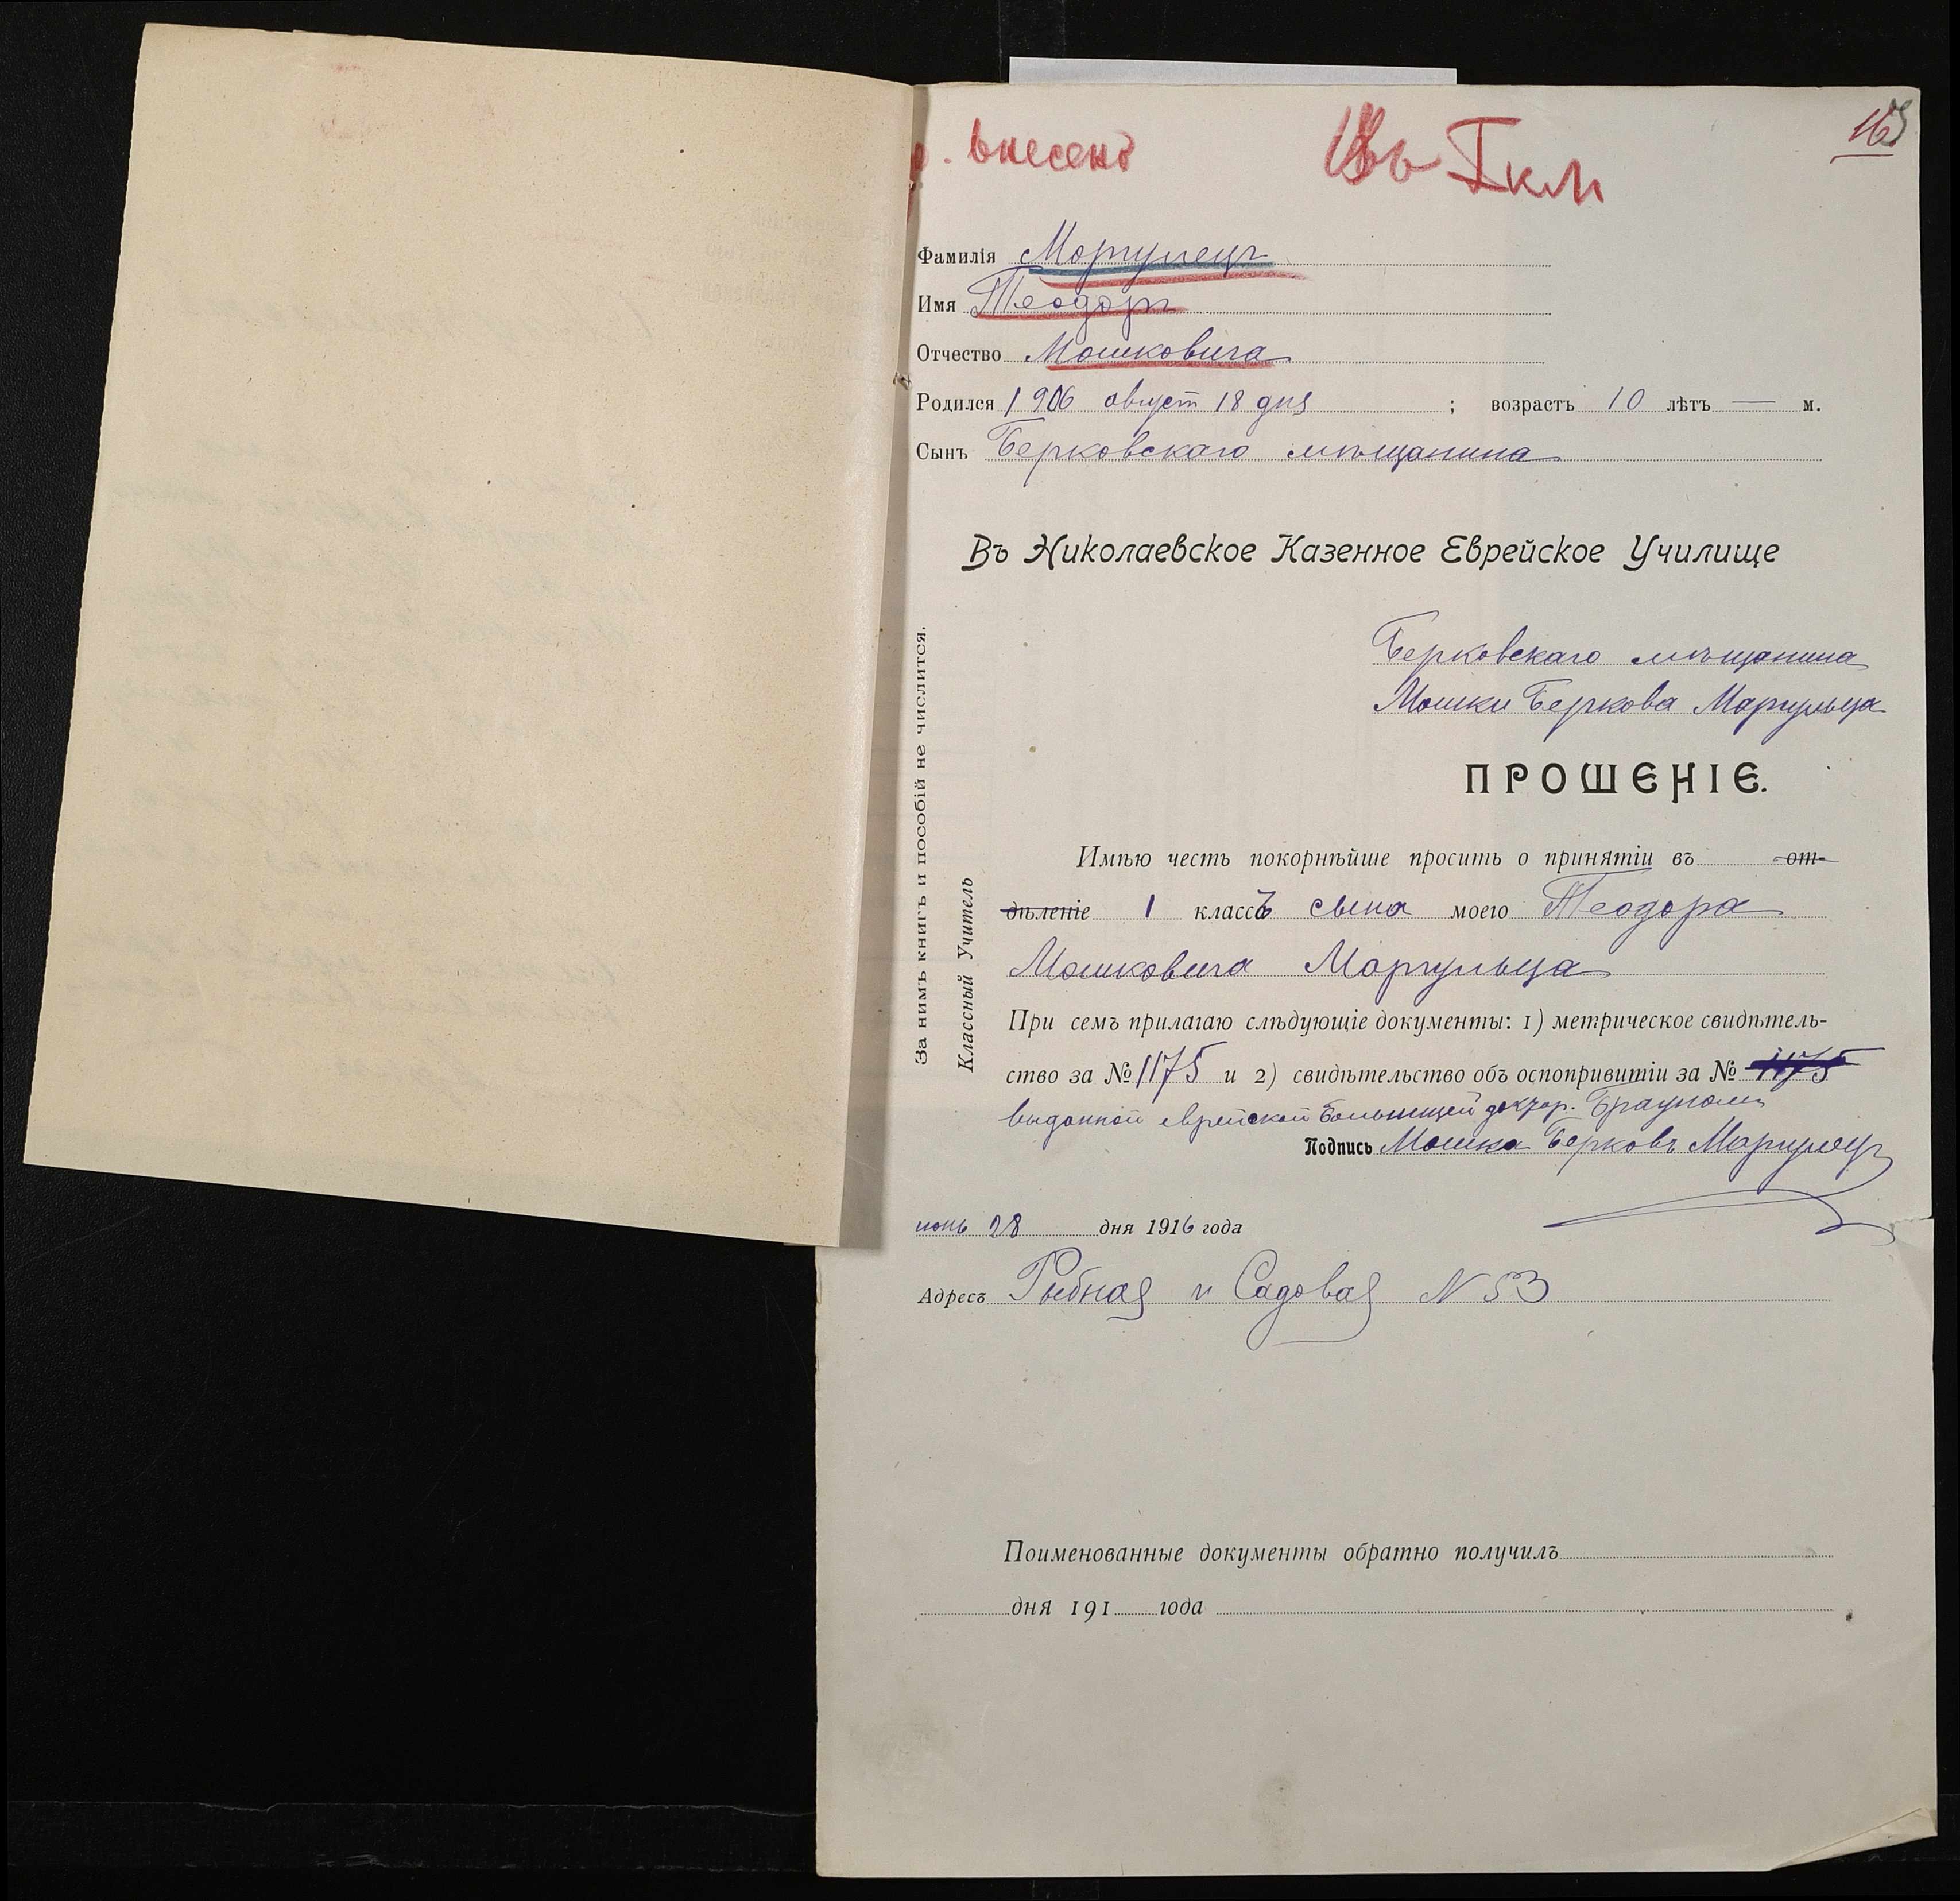 внесено
Въ I кл
165
Фамилія Моргулецъ
Имя Теодоръ
Отчество Мошковича
Родился 1906 август 18 дня ; возрастъ 10 лѣтъ — м.
Сынъ Берковскаго мѣщанина
Въ Николаевское Казенное Еврейское Училище
Берковскаго мѣщанина
Мошки Беркова Маргульца
ПРОШЕНІЕ.
Имѣю честь покорнѣйше просить о принятіи въ от-
дѣленіе 1 классъ сына моего Теодора
Мошковича Моргульца
При семъ прилагаю слѣдующіе документы: 1) метрическое свидѣтель-
ство за № 1175 и 2) свидѣтельство объ оспопривитіи за № 1175
выданной еврейской больницей доктор. Брауном
Подпись Мошка Берковъ Маргулецъ
июнь 28 дня 1916 года
Адресъ Рыбная и Садовая N 53
Поименованные документы обратно получилъ
дня 191 года
За нимъ книгъ и пособій не числится.
Классный Учитель